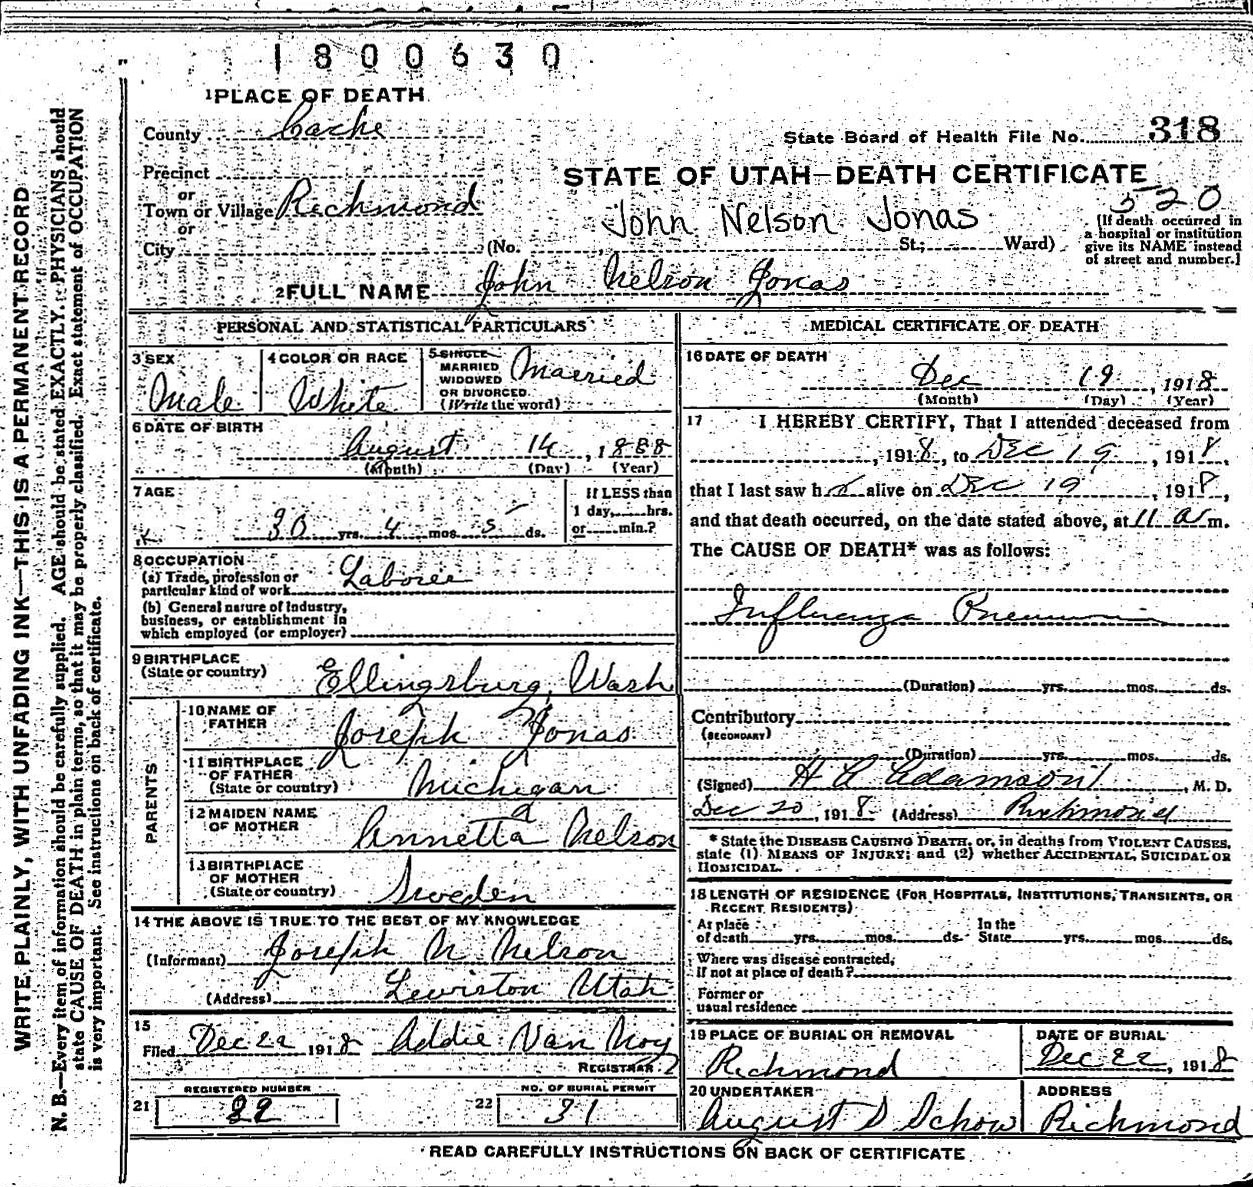 1800630
WRITE PLAINLY, WITH UNFADING INK—THIS IS A PERMANENT RECORD
N. B.—Every item of information should be carefully supplied. AGE should be stated EXACTLY. PHYSICIANS should
state CAUSE OF DEATH in plain terms, so that it may be properly classified. Exact statement of OCCUPATION
is very important. See instructions on back of certificate.
1 PLACE OF DEATH
County Cache
State Board of Health File No. 318
Precinct
or
STATE OF UTAH—DEATH CERTIFICATE
520
Town or Village Richmond
or
John Nelson Jonas
City (No. St.; Ward)
[If death occurred in
a hospital or institution
give its NAME instead
of street and number.]
2 FULL NAME John Nelson Jonas
PERSONAL AND STATISTICAL PARTICULARS
3 SEX
Male
4 COLOR OR RACE
White
5 SINGLE
MARRIED
WIDOWED
OR DIVORCED
(Write the word)
Married
6 DATE OF BIRTH
August 14, 1888
(Month) (Day) (Year)
7 AGE
30 yrs. 4 mos. 5 ds.
If LESS than
1 day, hrs.
or min.?
8 OCCUPATION
(a) Trade, profession or
particular kind of work Laborer
(b) General nature of industry,
business, or establishment in
which employed (or employer)
9 BIRTHPLACE
(State or country) Ellingsburg, Wash
PARENTS
10 NAME OF
FATHER Joseph Jonas
11 BIRTHPLACE
OF FATHER
(State or country) Michigan
12 MAIDEN NAME
OF MOTHER Annetta Nelson
13 BIRTHPLACE
OF MOTHER
(State or country) Sweden
14 THE ABOVE IS TRUE TO THE BEST OF MY KNOWLEDGE
(Informant) Joseph N Nelson
(Address) Lewiston Utah
15
Filed Dec 22 1918 Addie Van Noy
REGISTRAR
REGISTERED NUMBER
21 32
NO. OF BURIAL PERMIT
22 31
MEDICAL CERTIFICATE OF DEATH
16 DATE OF DEATH
Dec 19, 1918
(Month) (Day) (Year)
17 I HEREBY CERTIFY, That I attended deceased from
, 1918, to Dec 19, 1918,
that I last saw h alive on Dec 19, 1918,
and that death occurred, on the date stated above, at 11 a m.
The CAUSE OF DEATH* was as follows:
Influenza Pneumonia
(Duration) yrs. mos. ds.
Contributory
(SECONDARY)
(Duration) yrs. mos. ds.
(Signed) H A Adamson, M. D.
Dec 20, 1918 (Address) Richmond
* State the DISEASE CAUSING DEATH, or, in deaths from VIOLENT CAUSES,
state (1) MEANS OF INJURY; and (2) whether ACCIDENTAL, SUICIDAL OR
HOMICIDAL.
18 LENGTH OF RESIDENCE (FOR HOSPITALS, INSTITUTIONS, TRANSIENTS, OR
RECENT RESIDENTS)
At place
of death yrs. mos. ds.
In the
State yrs. mos. ds.
Where was disease contracted,
if not at place of death?
Former or
usual residence
19 PLACE OF BURIAL OR REMOVAL
Richmond
DATE OF BURIAL
Dec 22, 1918
20 UNDERTAKER
August S Schow
ADDRESS
Richmond
READ CAREFULLY INSTRUCTIONS ON BACK OF CERTIFICATE